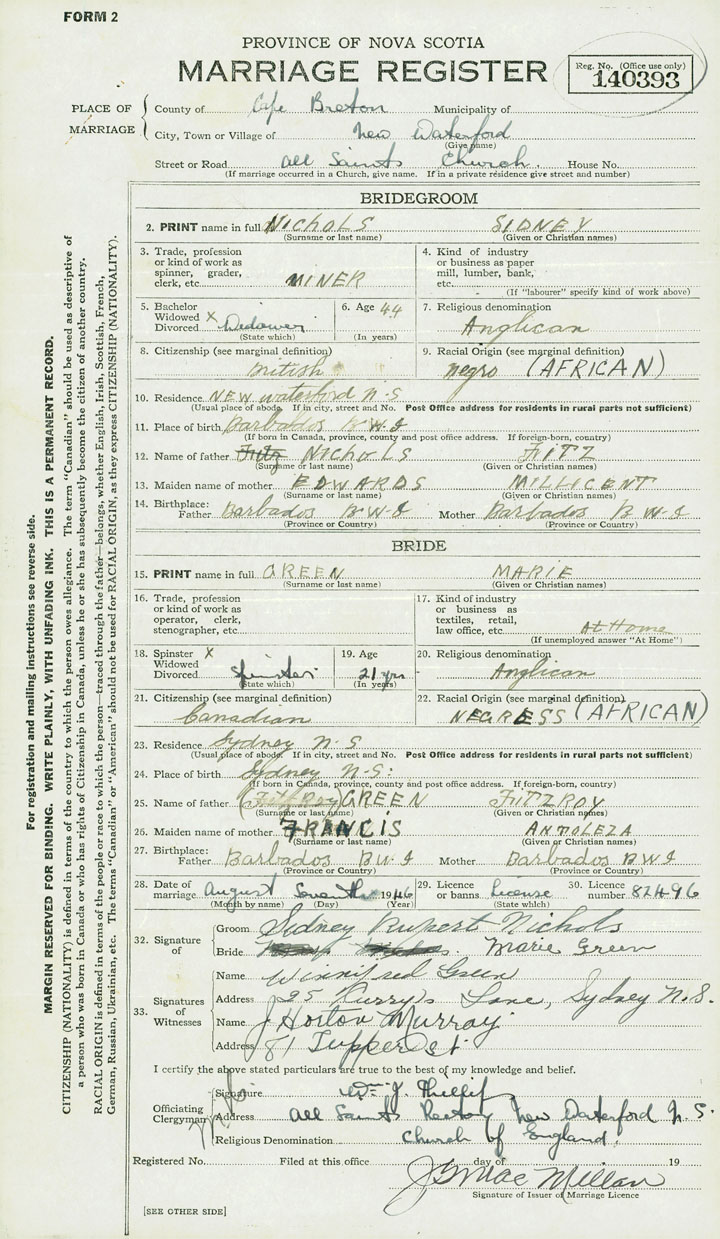 FORM 2
PROVINCE OF NOVA SCOTIA
MARRIAGE REGISTER
Reg. No. (Office use only)
140393
PLACE OF MARRIAGE
County of Cape Breton Municipality of
City, Town or Village of New Waterford
(Give name)
Street or Road All Saints Church. House No.
(If marriage occurred in a Church, give name. If in a private residence give street and number)
BRIDEGROOM
2. PRINT name in full NICHOLS SIDNEY
(Surname or last name) (Given or Christian names)
3. Trade, profession or kind of work as spinner, grader, clerk, etc. MINER
4. Kind of industry or business as paper mill, lumber, bank, etc.
(If "labourer" specify kind of work above)
5. Bachelor Widowed X Divorced Widower
(State which)
6. Age 44
(In years)
7. Religious denomination
Anglican
8. Citizenship (see marginal definition)
British
9. Racial Origin (see marginal definition)
negro (AFRICAN)
10. Residence NEW waterford N.S
(Usual place of abode. If in city, street and No. Post Office address for residents in rural parts not sufficient)
11. Place of birth Barbados B W I
(If born in Canada, province, county and post office address. If foreign-born, country)
12. Name of father Fritz NICHOLS FITZ
(Surname or last name) (Given or Christian names)
13. Maiden name of mother EDWARDS MILLICENT
(Surname or last name) (Given or Christian names)
14. Birthplace: Father Barbados B W I Mother Barbados B W I
(Province or Country) (Province or Country)
BRIDE
15. PRINT name in full GREEN MARIE
(Surname or last name) (Given or Christian names)
16. Trade, profession or kind of work as operator, clerk, stenographer, etc.
17. Kind of industry or business as textiles, retail, law office, etc. At Home
(If unemployed answer "At Home")
18. Spinster X Widowed Divorced Spinster
(State which)
19. Age 21 yrs
(In years)
20. Religious denomination
Anglican
21. Citizenship (see marginal definition)
Canadian
22. Racial Origin (see marginal definition)
NEGRESS (AFRICAN)
23. Residence Sydney N.S
(Usual place of abode. If in city, street and No. Post Office address for residents in rural parts not sufficient)
24. Place of birth Sydney N.S.
(If born in Canada, province, county and post office address. If foreign-born, country)
25. Name of father GREEN FITZROY
(Surname or last name) (Given or Christian names)
26. Maiden name of mother FRANCIS ANDLEZA
(Surname or last name) (Given or Christian names)
27. Birthplace: Father Barbados B W I Mother Barbados B W I
(Province or Country) (Province or Country)
28. Date of marriage August Seventh 1946
(Month by name) (Day) (Year)
29. Licence or banns License
(State which)
30. Licence number 82496
32. Signature of
Groom Sidney Rupert Nichols
Bride Marie Green
33. Signatures of Witnesses
Name Winnifred Green
Address 25 Curry's Lane, Sydney N.S.
Name J Horton Murray
Address 81 Tupper St
I certify the above stated particulars are true to the best of my knowledge and belief.
Officiating Clergyman
Signature Wm J.
Address All Saints Rectory New Waterford N.S.
Religious Denomination Church of England.
Registered No. Filed at this office day of 19
J G MacMillan
Signature of Issuer of Marriage Licence
[SEE OTHER SIDE]
For registration and mailing instructions see reverse side.
MARGIN RESERVED FOR BINDING. WRITE PLAINLY, WITH UNFADING INK. THIS IS A PERMANENT RECORD.
CITIZENSHIP (NATIONALITY) is defined in terms of the country to which the person owes allegiance. The term "Canadian" should be used as descriptive of
a person who was born in Canada or who has rights of Citizenship in Canada, unless he or she has subsequently become the citizen of another country.
RACIAL ORIGIN is defined in terms of the people or race to which the person—traced through the father—belongs, whether English, Irish, Scottish, French,
German, Russian, Ukrainian, etc. The terms "Canadian" or "American" should not be used for RACIAL ORIGIN, as they express CITIZENSHIP (NATIONALITY).